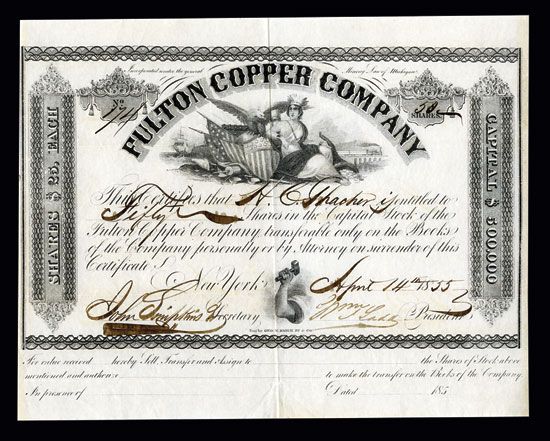 Incorporated under the general Mining Law of Michigan
FULTON COPPER COMPANY
No
174
50
SHARES
SHARES $ 25, EACH
CAPITAL $ 500,000
This certifies that H. C. Thacher is entitled to
Fifty Shares in the Capital Stock of the
Fulton Copper Company, transferable only on the Books
of the Company personally or by Attorney on surrender of this
Certificate
New York April 14th 1855
John Simpkins Secretary Wm Ladd President
For value received hereby Sell, Transfer and Assign to the Shares of Stock above
mentioned and authorize to make the transfer on the Books of the Company.
In presence of Dated 185